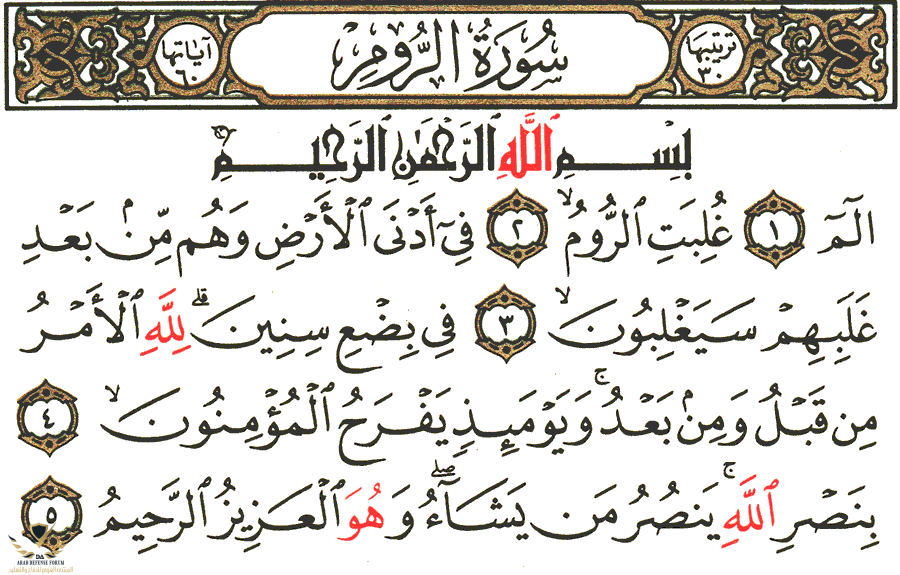 ترتيبها ٣٠ سُورَةُ الرُّومِ آياتها ٦٠
بِسْمِ ٱللَّهِ ٱلرَّحْمَٰنِ ٱلرَّحِيمِ
الٓمٓ ١ غُلِبَتِ ٱلرُّومُ ۙ ٢ فِىٓ أَدْنَى ٱلْأَرْضِ وَهُم مِّنۢ بَعْدِ
غَلَبِهِمْ سَيَغْلِبُونَ ۙ ٣ فِى بِضْعِ سِنِينَ ۗ لِلَّهِ ٱلْأَمْرُ
مِن قَبْلُ وَمِنۢ بَعْدُ ۚ وَيَوْمَئِذٍ يَفْرَحُ ٱلْمُؤْمِنُونَ ۙ ٤
بِنَصْرِ ٱللَّهِ ۚ يَنصُرُ مَن يَشَآءُ ۖ وَهُوَ ٱلْعَزِيزُ ٱلرَّحِيمُ ٥
ARAB DEFENSE FORUM
المنتدى العربي للدفاع والتسليح